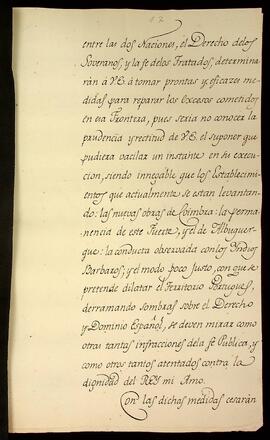 entre las dos Naciones, el Derecho delos
Soveranos, y la fe delos Tratados, determina-
rán á V.E. á tomar prontas y eficazes me-
didas para reparar los excesos cometidos
en esa Frontera, pues seria no conocer la
prudencia y rectitud de V.E. el suponer que
pudiera vacilar un instante en su execu-
cion, siendo innegable que los Establecimi-
entos que actualmente se estan levantan-
do: las nuevas obras de Coimbra: la perma-
nencia de este Fuerte, y el de Albuquer-
que: la conducta observada con los Yndios
Barbaros, y el modo poco justo, con que se
pretende dilatar el Territorio Portugues,
derramando sombras sobre el Derecho
y Dominio Español, se deven mirar como
otras tantas infracciones dela fe Publica, y
como otros tantos atentados contra la
dignidad del REY mi Amo.
Con las dichas medidas cesarán